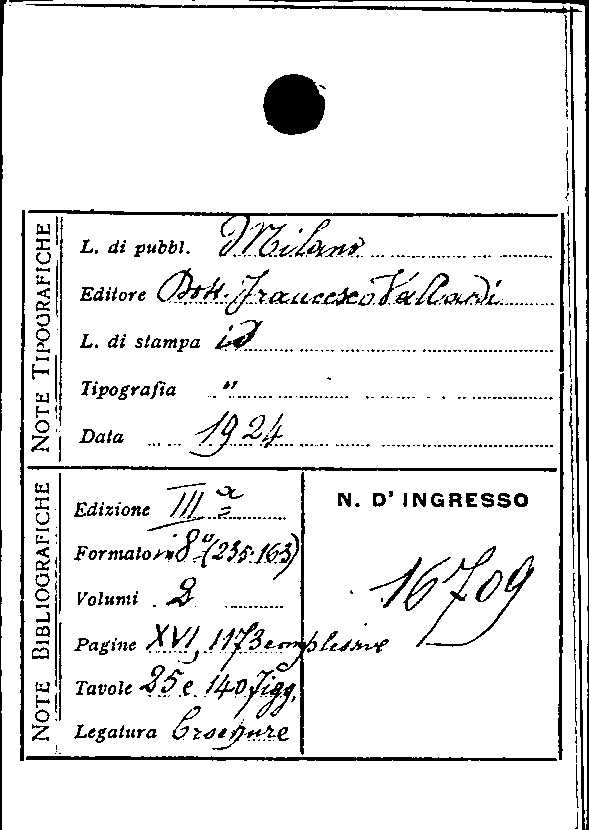 NOTE TIPOGRAFICHE
L. di pubbl. Milano
Editore Dott. Francesco Vallardi
L. di stampa id
Tipografia "
Data 1924
NOTE BIBLIOGRAFICHE
Edizione III a
Formato in 8° (235.163)
Volumi 2
Pagine XVI, 1173 complessive
Tavole 25 e 140 figg.
Legatura brochure
N. D' INGRESSO
16709